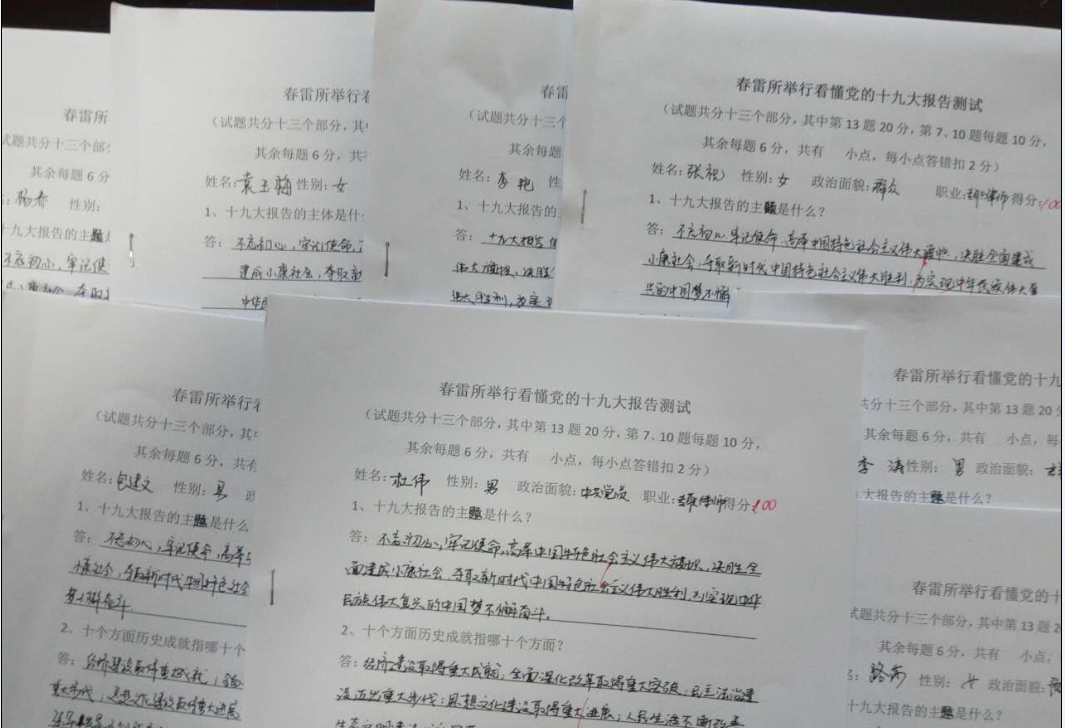 春雷所
试题共分十三个部分
其余每题 6 分
杨春 性别:
十九大报告的主题
不忘初心,牢记使
春雷所举行看
(试题共分十三个部分,其中
其余每题 6 分,共有
姓名:袁玉梅 性别:女
1、十九大报告的主体是什么
答: 不忘初心,牢记使命,
建成小康社会,夺取新
中华民
春雷
(试题共分十三个
其余每题
姓名:李艳 性
1、十九大报告的
答: 十九大报告
伟大旗帜,决胜
伟大胜利,为实现
春雷所举行看懂党的十九大报告测试
(试题共分十三个部分,其中第 13 题 20 分,第 7、10 题每题 10 分,
其余每题 6 分,共有 小点,每小点答错扣 2 分)
姓名:张祝 性别:女 政治面貌:群众 职业: 得分:100
1、十九大报告的主题是什么?
答: 不忘初心,牢记使命,高举中国特色社会主义伟大旗帜,决胜全面建成
小康社会,夺取新时代中国特色社会主义伟大胜利,为实现中华民族伟大复
兴的中国梦不懈
春雷所举行看
(试题共分十三个部分,其中
其余每题 6 分,共有
姓名:包建文 性别:男 政
1、十九大报告的主题是什么
答: 不忘初心,牢记使命,高举
小康社会,夺取新时代中国特色社会
梦不懈奋斗
2、十个方面历史成就指哪十个
答: 经济建设取得重大成就;全面
重大步伐;思想文化建设取得重大进展
春雷所举行看懂党的十九大报告测试
(试题共分十三个部分,其中第 13 题 20 分,第 7、10 题每题 10 分,
其余每题 6 分,共有 小点,每小点答错扣 2 分)
姓名:杜伟 性别:男 政治面貌:中共党员 职业:专职律师得分:100
1、十九大报告的主题是什么?
答: 不忘初心,牢记使命,高举中国特色社会主义伟大旗帜,决胜全
面建成小康社会,夺取新时代中国特色社会主义伟大胜利,为实现中华
民族伟大复兴的中国梦不懈奋斗。
2、十个方面历史成就指哪十个方面?
答: 经济建设取得重大成就;全面深化改革取得重大突破;民主法治建
设迈出重大步伐;思想文化建设取得重大进展;人民生活不断改善
春雷所举行看懂党的十九
共分十三个部分,其中第 13 题 20 分
其余每题 6 分,共有 小点,每
李涛性别:男 政治面貌:
大报告的主题是什么?
春雷所举行看懂党的十
试题共分十三个部分,其中第 13 题 2
其余每题 6 分,共有 小点,
路 性别:女 政治面貌:
十九大报告的主题是什么?